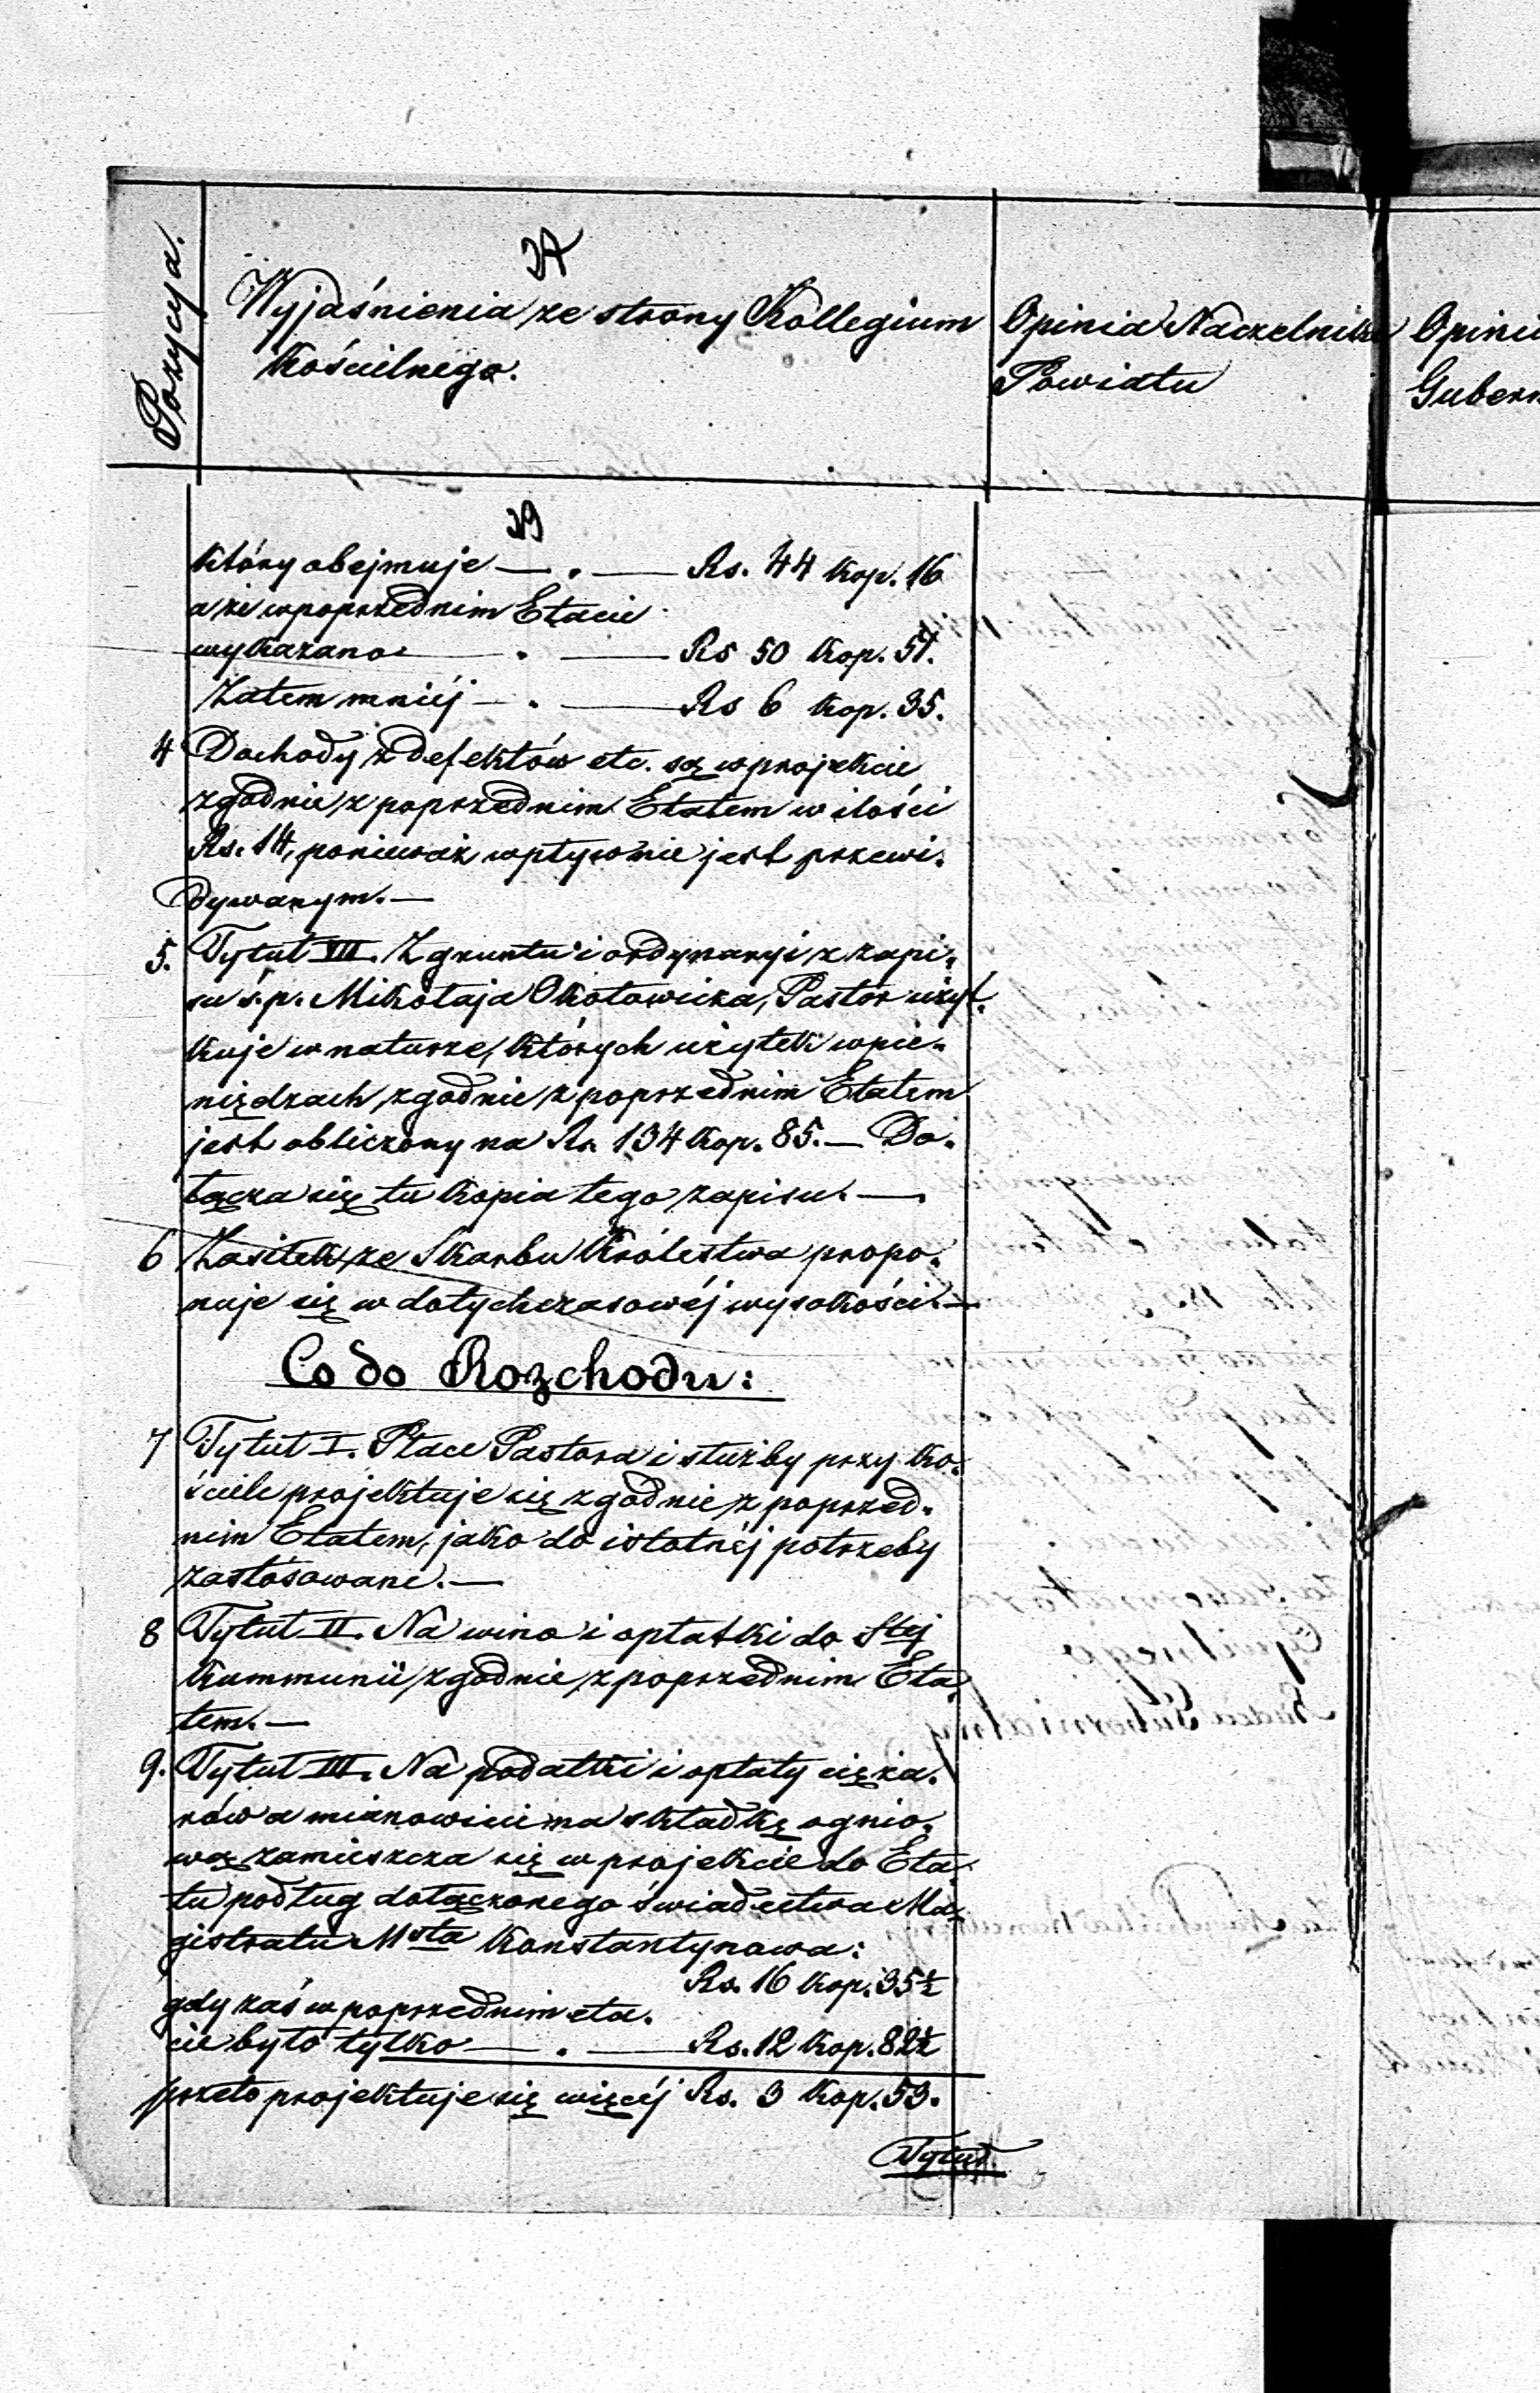 Pozycya.
Wyjaśnienia ze strony Kollegium
Kościelnego.
Opinia Naczelnika
Powiatu
39
który obejmuje — . — Rs. 44 kop. 16
a że w poprzednim Etacie
wykazano — . — Rs 50 kop. 51.
Zatem mniéj — . — Rs 6 kop. 35.
4 Dochody z defektów etc. są w projekcie
zgodnie z poprzednim Etatem w ilości
Rs. 14, ponieważ wpływ nie jest przewi-
dywanym. —
5. Tytuł VII. Z gruntu i ordynaryi z zapi-
su ś.p. Mikołaja Okołowicza, Pastor użyt-
kuje w naturze, których użytek w pie-
niędzach, zgodnie z poprzednim Etatem
jest obliczony na Rs. 134 kop. 85. — Do-
łącza się tu kopia tego zapisu. —
6 Zasiłek ze Skarbu Królestwa propo-
nuje się w dotychczasowéj wysokości. —
Co do Rozchodu:
7 Tytuł I. Płace Pastora i służby przy Ko-
ściele projektuje się zgodnie z poprzed-
nim Etatem, jako do istotnéj potrzeby
zastósowane. —
8 Tytuł II. Na wino i opłatki do Stej
Kummunii zgodnie z poprzednim Eta-
tem. —
9. Tytuł III. Na podatki i opłaty cięża-
rów a mianowicie na składkę ognio-
wą zamieszcza się w projekcie do Eta-
tu podług dołączonego świadectwa Ma-
gistratu Msta Konstantynowa:
Rs. 16 kop. 35½
gdy zaś w poprzednim eta-
cie było tylko — . — Rs. 12 kop. 82½
przeto projektuje się więcéj Rs. 3 kop. 53.
Tytuł